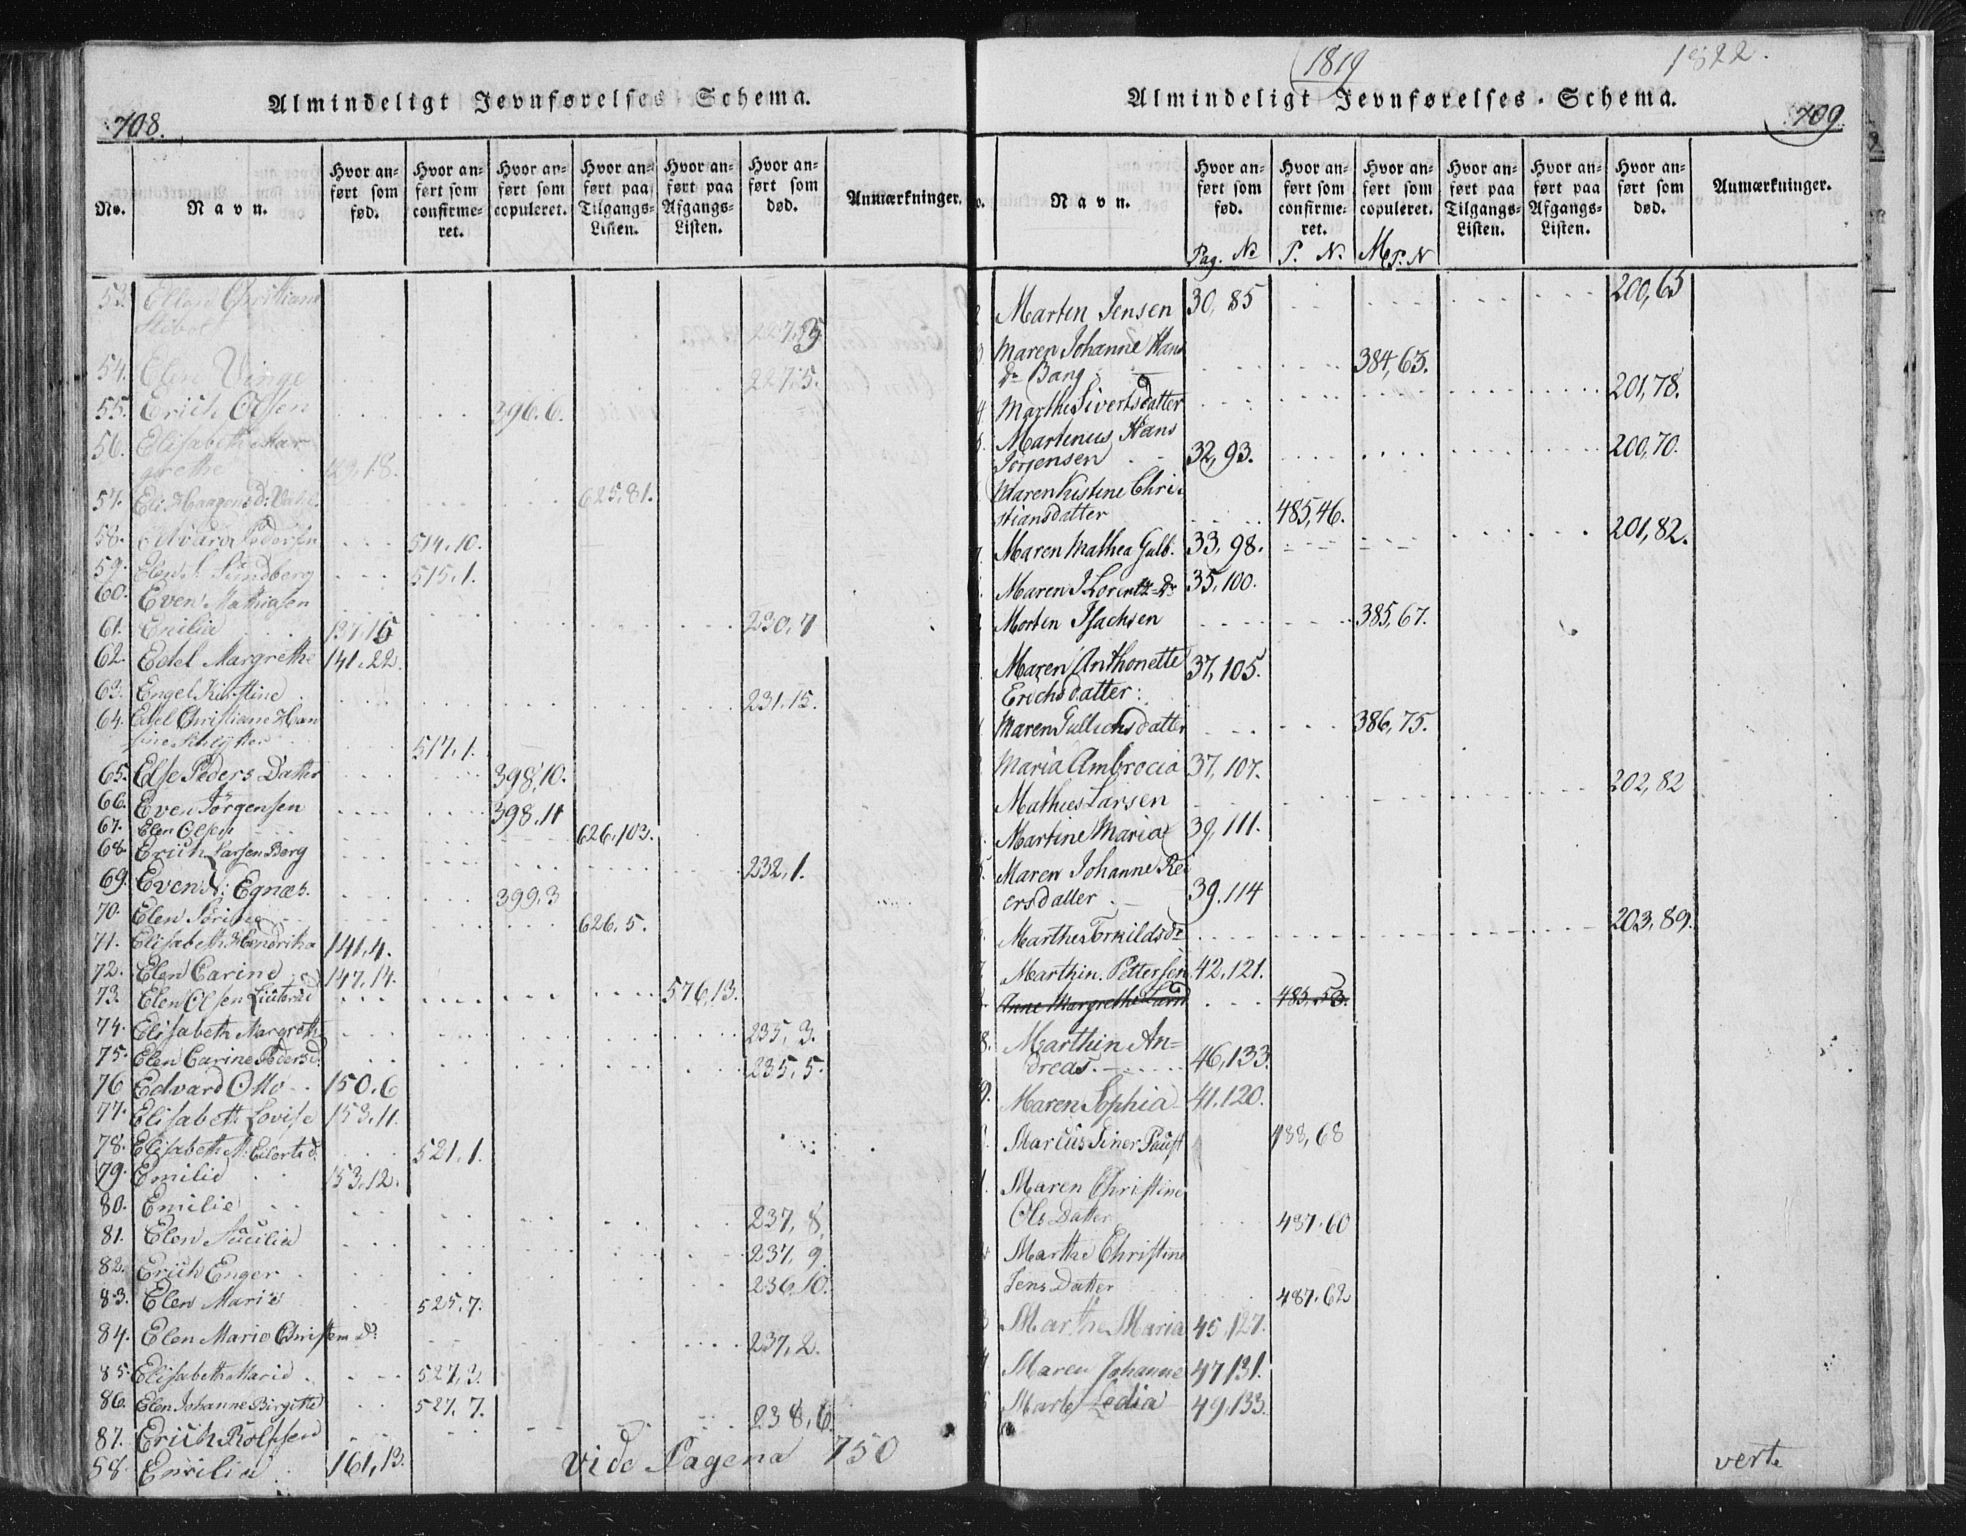 708.
Almindeligt Jevnførelses-Schema.
No.
Navn.
Hvor anført som fød.
Hvor anført som confirmeret.
Hvor anført som copuleret.
Hvor anført paa Tilgangs-Listen.
Hvor anført paa Afgangs-Listen.
Hvor anført som død.
Anmærkninger.
53. Ellen Christiane
54. Elen Vinge 227.5.
55. Erich Olsen 396.6.
56. Elisabeth Mar
grethe 129.18.
57. Eli Haagensd: 625,81.
58. Edvard Pedersen 514.10.
59. Elen Sundberg 515.1.
60. Even Mathiasen 230,7
61. Emilia 137.15
62. Edel Margrethe 141.22.
63. Engel Kirstine 231.15.
64. Edel Christiane Han
sine 517.1.
65. Else Peders Datter 398,10.
66. Even Jørgensen 398.11
67. Elen Olsen 626,103.
68. Erich Larsen Berg 232,1.
69. Even N: Egnæs. 399.3
70. Elen 626,5.
71. Elisabeth Hendrika 141,4.
72. Elen Carine 147,14.
73. Elen Olsen 576,13.
74. Elisabeth Margreth 235,3.
75. Elen Carine Pedersd. 235,5.
76 Edvard Otto 150.6
77. Elisabeth Lovise 153,11.
78. Elisabeth M. Eilertsd. 521.1.
79. Emilie 153,12.
80. Emilie 237,8.
81. Elen 237.9.
82. Erich Enger 236,10.
83. Elen Marie 525.7.
84. Elen Marie Christen D: 237,2.
85. Elisabeth Marie 527,3.
86. Elen Johanne Birgitte 527.7.
87. Erich Rolfsen 238,6
58. Emilia 161,13.
Vide Pagena 750
1819
1822.
Almindeligt Jevnførelses-Schema.
709
Navn.
Hvor anført som fød.
Hvor anført som confirmeret.
Hvor anført som copuleret.
Hvor anført paa Tilgangs-Listen.
Hvor anført paa Afgangs-Listen.
Hvor anført som død.
Anmærkninger.
Pag. No P. No. P. N
Marten Jensen 30,85 200,65
Maren Johanne Hans
Dr Bang 384,63.
Marthe Sivertsdatter 201,78.
Martenus Hans
Jørjensen 32,93. 200,70.
Maren Kistene Chri
stiansdatter 485,46.
Maren Mathea Gulb. 33,98. 201,82.
Maren J Lorentz-Dr 35,100.
Morten Isachsen 385,67.
Maren Anthonette 37,105.
Erichsdatter:
Maren Gullichsdatter 386,75.
Maria Ambrocia 37,107.
Mathies Larsen 202,82
Martine Maria 39,111.
Maren Johanne Re
ersdatter 39.114
Marthe Torkildsdr 203,89.
Marthin. Pettersen 42,121.
Anne Margrethe Lund 485,53.
8. Marthin An=
dreas. 46,133.
9. Maren Sophia 41.120.
Marcus Siner Paust 488,68
Maren Christine
Ols Datter 487.60
Marthe Christine
Jens Datter 487.62
Marthe Maria 45,127.
Maren Johanne 47131.
Marte Ledia 49,133.
verte